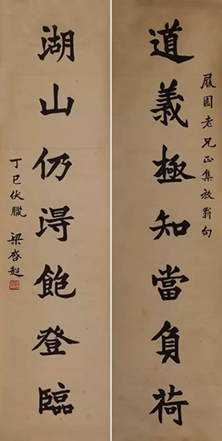 道義極知當負荷
履園老兄正集放翁句
湖山仍得飽登臨
丁巳伏臘 梁啓超